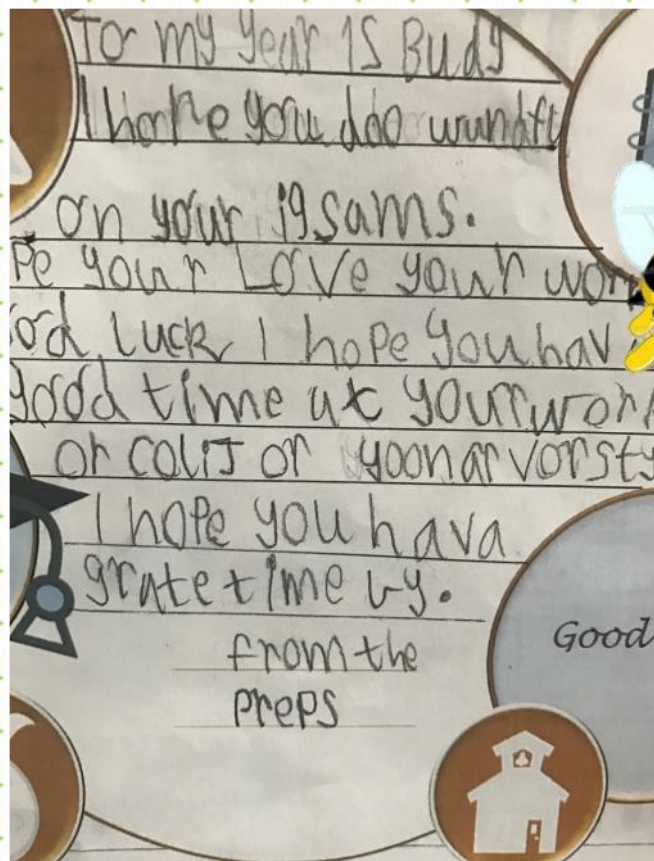 To my Year 1S Budy
I hope you doo wundfu
on your igsams.
Pe your Love your wor
od luck I hope you hav
good time at yourr work
or colIJ or yoonarvorsty
I hope you hava
grate time by.
from the
PrePs
Good